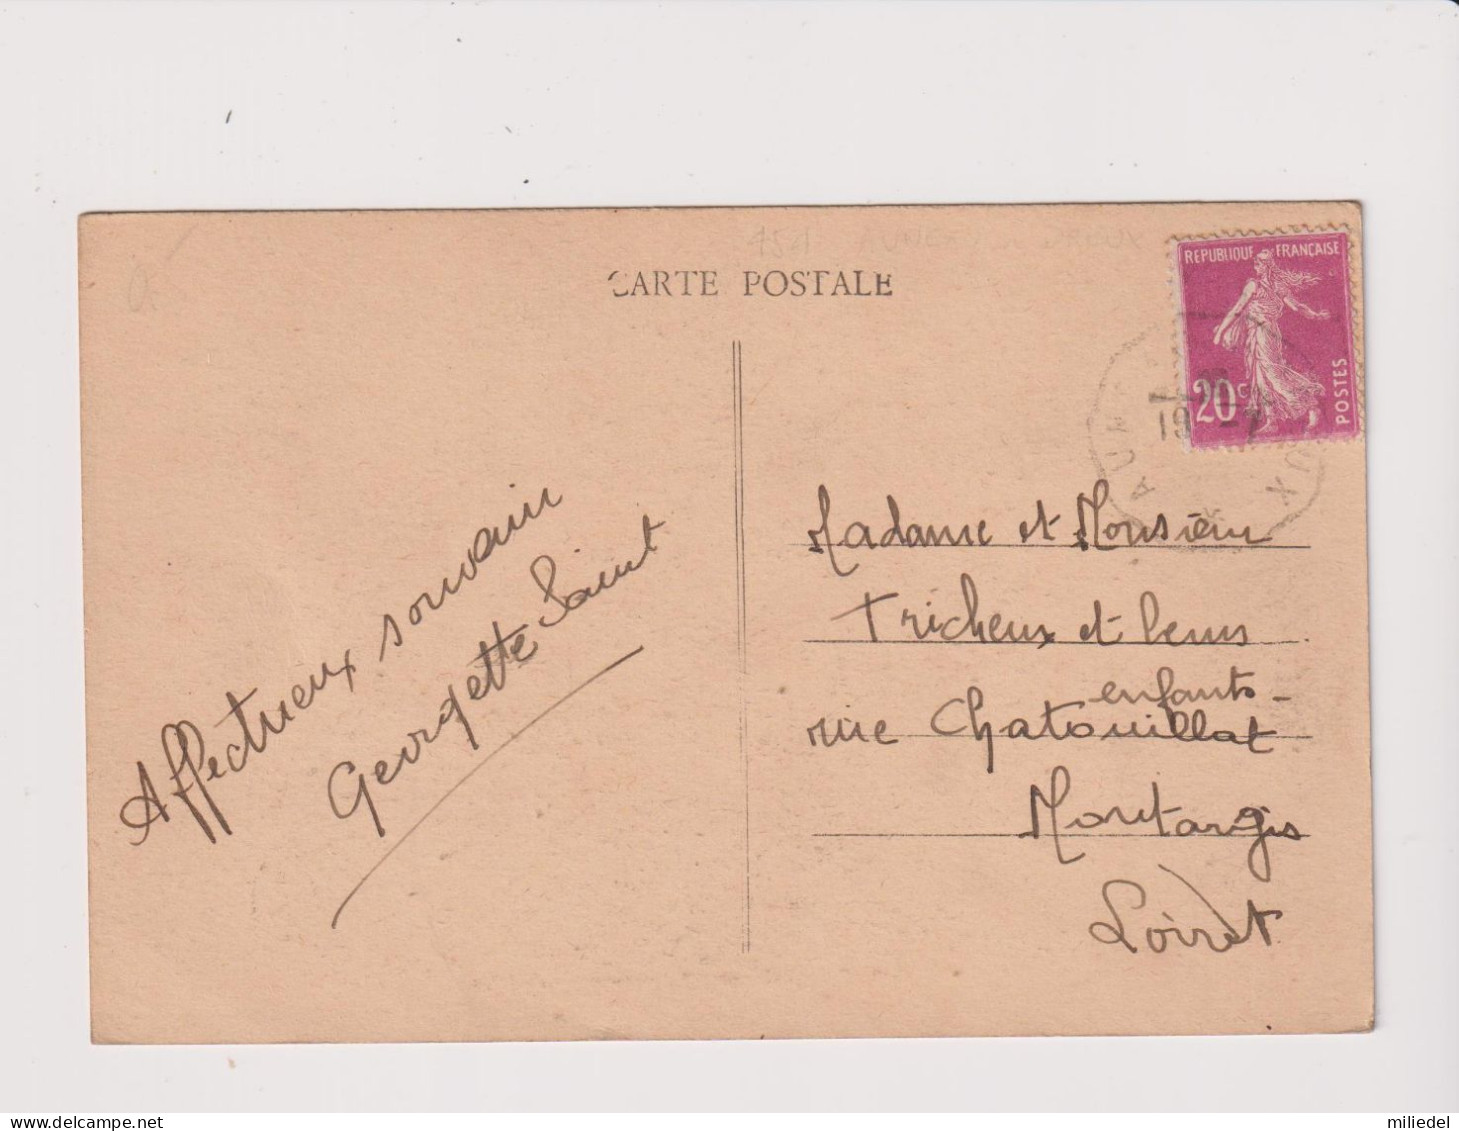 CARTE POSTALE
REPUBLIQUE FRANÇAISE
20c
POSTES
19 -7
Affectueux souvenir
Georgette Saint
Madame et Monsieur
Tricheux et leurs
enfants -
rue Chatouillat
Montargis
Loiret
miliedel